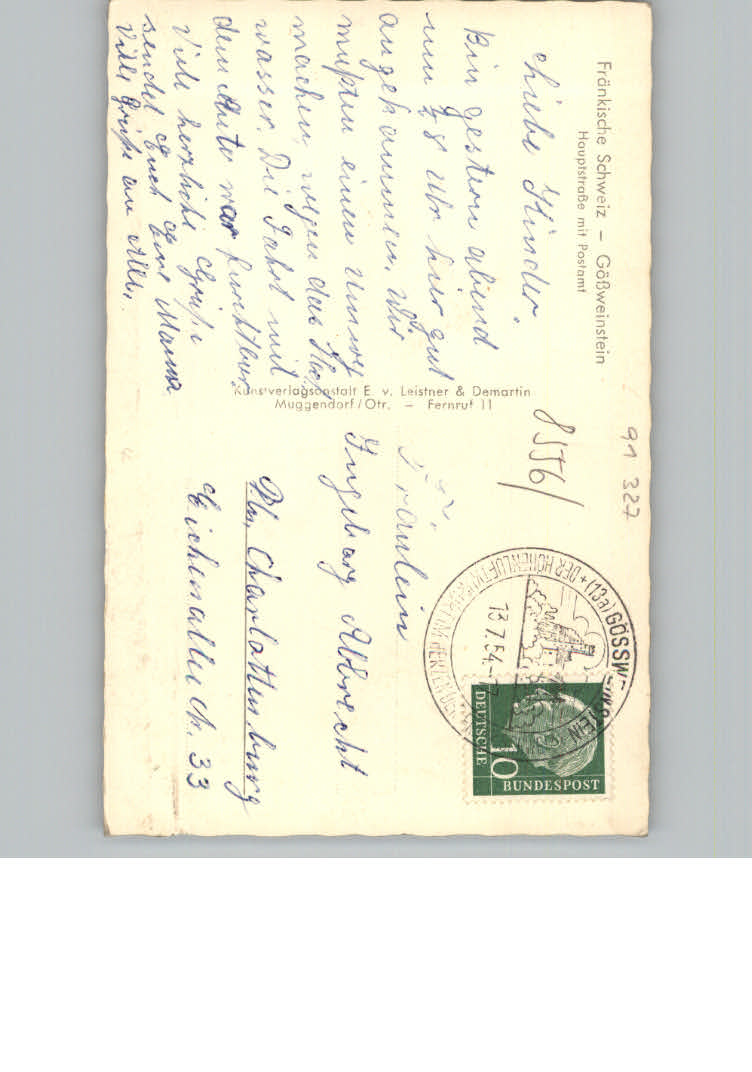 Fränkische Schweiz – Gößweinstein
Hauptstraße mit Postamt
Liebe Kinder.
Bin gestern abend
um ½8 Uhr hier gut
angekommen. Wir
mußten einen Umweg
machen wegen das Hoch
wasser. Die Fahrt mit
dem Auto war furchtbar.
Viele herzliche Grüße
sendet Euch Eure Mama.
Viele Grüße an Alle.
Kunstverlagsanstalt E. v. Leistner & Demartin
Muggendorf/Ofr. – Fernruf 11
91 327
8556/
GÖSSWEINSTEIN
13.7.54.-7
10
DEUTSCHE
BUNDESPOST
Fräulein
Ingeborg Albrecht
Bln. Charlottenburg
Eichenallee Nr. 33